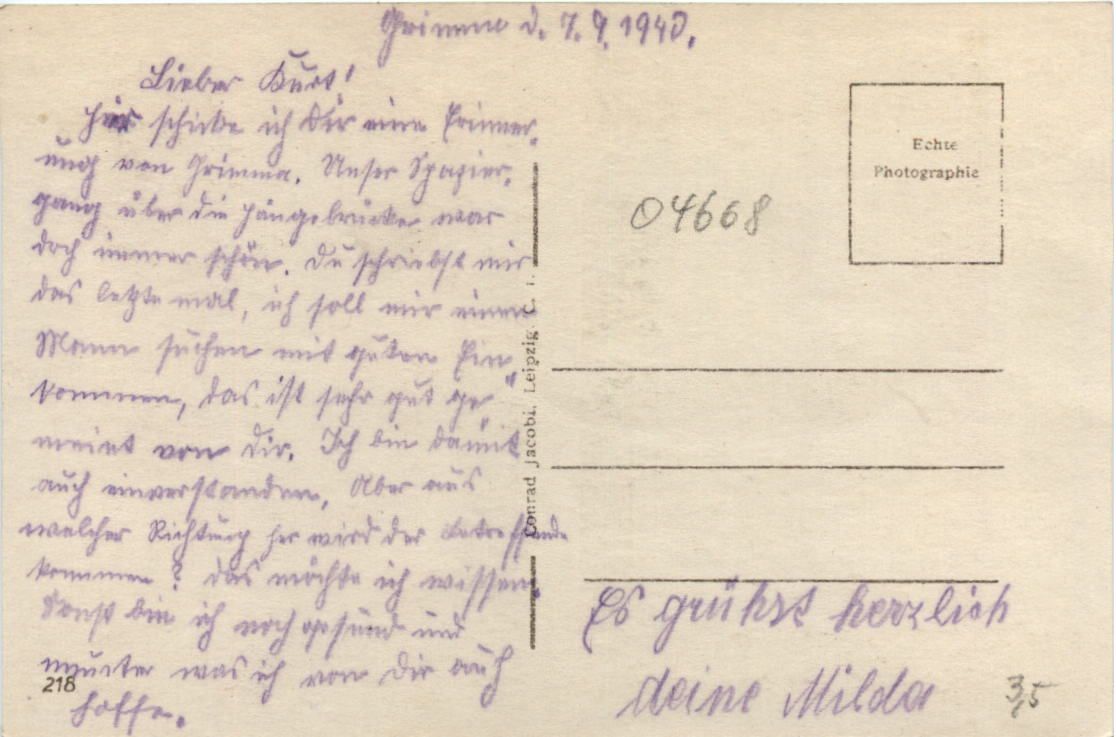 Grimma d. 7.9.1940.
Lieber Kurt!
Hier schicke ich Dir eine Erinner-
ung von Grimma. Unser Spazier-
gang über die Hängebrücke war
doch immer schön. Du schriebst mir
das letzte mal, ich soll mir einen
Mann suchen mit guten Ein-
kommen, das ist sehr gut ge-
meint von Dir. Ich bin damit
auch einverstanden. Aber aus
welcher Richtung her wird der betreffende
kommen? Das möchte ich wissen.
Sonst bin ich noch gesund und
munter was ich von Dir auch
hoffe.
218
Conrad Jacobi, Leipzig C. 1.
Echte
Photographie
04668
Es grühst herzlich
deine Milda
3,5